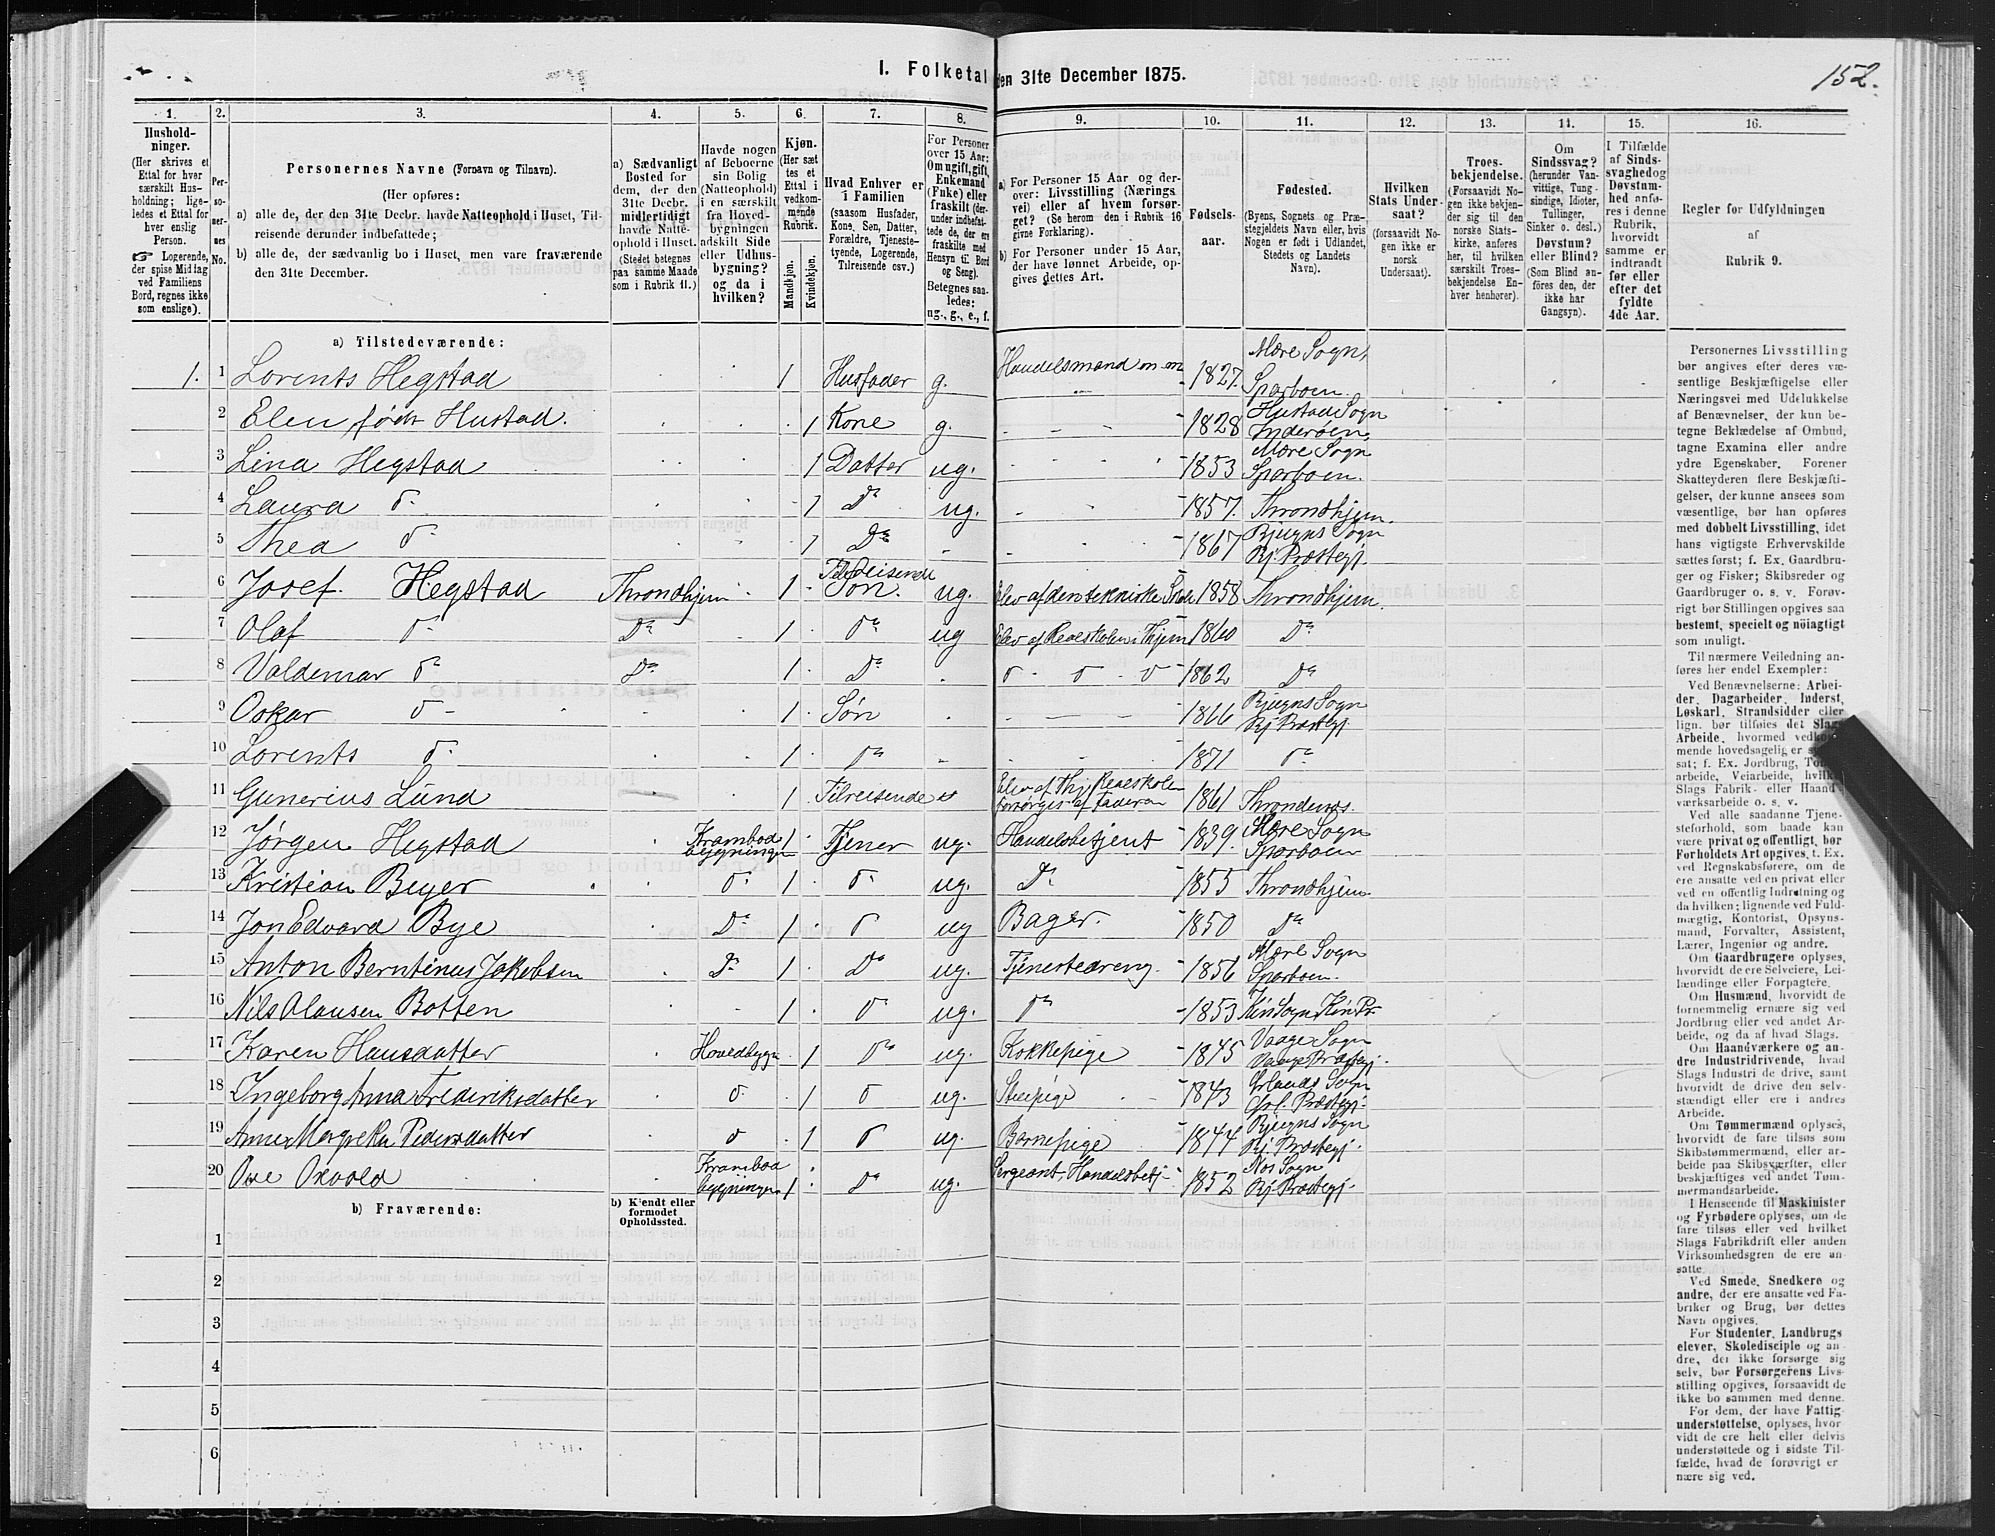 I. Folketal den 31te December 1875.
152.
1. 2. 3. 4. 5. 6. 7. 8. 9. 10. 11. 12. 13. 14. 15. 16.
Hushold-
ninger.
(Her skrives et
Ettal for hver
særskilt Hus-
holdning; lige-
ledes et Ettal for
hver enslig
Person.
☞ Logerende,
der spise Middag
ved Familiens
Bord, regnes ikke
som enslige).
Per-
so-
ner-
nes
No.
Personernes Navne (Fornavn og Tilnavn).
(Her opføres:
a) alle de, der den 31te Decbr. havde Natteophold i Huset, Til-
reisende derunder indbefattede;
b) alle de, der sædvanlig bo i Huset, men vare fraværende
den 31te December.
a) Sædvanligt
Bosted for
dem, der den
31te Decbr.
midlertidigt
havde Natte-
ophold i Huset.
(Stedet betegnes
paa samme Maade
som i Rubrik 11.)
Havde nogen
af Beboerne
sin Bolig
(Natteophold)
i en særskilt
fra Hoved-
bygningen
adskilt Side
eller Udhus-
bygning?
og da i
hvilken?
Kjøn.
(Her sæt-
tes et
Ettal i
vedkom-
mende
Rubrik.
Mandkjøn.
Kvindekjøn.
Hvad Enhver er
i Familien
(saasom Husfader,
Kone, Søn, Datter,
Forældre, Tjeneste-
tyende, Logerende,
Tilreisende osv.)
For Personer
over 15 Aar:
Om ugift, gift,
Enkemand
(Enke) eller
fraskilt (der-
under indbefat-
tede de, der ere
fraskilte med
Hensyn til Bord
og Seng).
Betegnes saa-
ledes:
ug., g., e., f.
a) For Personer 15 Aar og der-
over: Livsstilling (Nærings-
vei) eller af hvem forsør-
get? (Se herom den i Rubrik 16
givne Forklaring).
b) For Personer under 15 Aar,
der have lønnet Arbeide, op-
gives dettes Art.
Fødsels-
aar.
Fødested.
(Byens, Sognets og Præ-
stegjeldets Navn eller, hvis
Nogen er født i Udlandet,
Stedets og Landets
Navn).
Hvilken
Stats Under-
saat?
(forsaavidt No-
gen ikke er
norsk
Undersaat).
Troes-
bekjendelse.
(Forsaavidt No-
gen ikke bekjen-
der sig til den
norske Stats-
kirke, anføres
her, til hvilken
særskilt Troes-
bekjendelse En-
hver henhører).
Om
Sindssvag?
(herunder Van-
vittige, Tung-
sindige, Idioter,
Tullinger,
Sinker o. desl.)
Døvstum?
eller Blind?
(Som Blind an-
føres den, der
ikke har
Gangsyn).
I Tilfælde
af Sinds-
svaghed og
Døvstum-
hed anfø-
res i denne
Rubrik,
hvorvidt
samme er
indtraadt
før eller
efter det
fyldte
4de Aar.
Regler for Udfyldningen
af
Rubrik 9.
a) Tilstedeværende:
1. 1 Lorents Hegstad 1 Husfader g. Handelsmand m m 1827. Mære Sogn, Sparboen.
2 Elen født Hustad. 1 Kone g. 1828 Hustad Sogn Inderøen.
3 Lina Hegstad 1 Datter ug. 1853 Mære Sogn Sparboen.
4 Laura do 1 Do ug. 1857. Throndhjem.
5 Thea do 1 Do 1867 Bjugns Sogn Bj Præstegj.
6 Josef. Hegstad Throndhjem 1 Tilreisende Søn. ug. Elev af den tekniske Skole 1858 Throndhjem.
7 Olaf do Do 1 Do ug Elev af Realskolen i Thjem 1860 Do
8 Valdemar do Do 1 Do do do do 1862 Do
9 Oskar do 1 Søn 1866 Bjugns Sogn Bj Præstegj
10 Lorents do 1 Do 1871 Do
11 Gunerius Lund 1 Tilreisende Elev af Thj Realskolen forsørges af Faderen 1861 Throndenæs.
12 Jørgen Hegstad Krambodbygningen 1 Tjener ug. Handelsbetjent 1839. Mære Sogn Sparboen
13 Kristian Beyer do 1 do ug. Do 1855 Throndhjem
14 Jon Edvard Bye Do 1 do ug Bager. 1850 Do
15 Anton Berntinus Jakobsen Do 1 Do ug. Tjenestedreng 1856 Mære Sogn Sparboen.
16 Nils Olausen Botten 1 do ug. Do 1853 Kin Sogn Kin Pr
17 Karen Hansdatter Hovedbygn 1 Do ug. Kokkepige 1845 Vaage Sogn Vaage Præstegj.
18 Ingeborg Anna Frederiksdatter do 1 do ug. Stuepige 1843 Ørlands Sogn Ørl. Præstegj.
19 Anne Margreta Pedersdatter do 1 do ug. Barnepige 1844 Bjugns Sogn Bj. Præstegj.
20 Ove Oxvold Krambodbygningen 1 Do ug. Sergeant, Handelsbetj 1852 Næs Sogn Bj Præstegj.
b) Fraværende:
b) Kjendt eller
formodet
Opholdssted.
1
2
3
4
5
6
Personernes Livsstilling
bør angives efter deres væ-
sentlige Beskjæftigelse eller
Næringsvei med Udelukkelse
af Benævnelser, der kun be-
tegne Beklædelse af Ombud,
tagne Examina eller andre
ydre Egenskaber. Forener
Skatteyderen flere Beskjæfti-
gelser, der kunne ansees som
væsentlige, bør han opføres
med dobbelt Livsstilling, idet
hans vigtigste Erhvervskilde
sættes først; f. Ex. Gaardbru-
ger og Fisker; Skibsreder og
Gaardbruger o. s. v. Forøv-
rigt bør Stillingen opgives saa
bestemt, specielt og nøiagtigt
som muligt.
Til nærmere Veiledning an-
føres her endel Exempler:
Ved Benævnelserne: Arbei-
der, Dagarbeider, Inderst,
Løskarl, Strandsidder eller
lign. bør tilføies det Slags
Arbeide, hvormed vedkom-
mende hovedsagelig er sys-
sat; f. Ex. Jordbrug, Tom-
arbeide, Veiarbeide, hvilket
Slags Fabrik- eller Haand-
værksarbeide o. s. v.
Ved alle saadanne Tjene-
steforhold, som baade kan
være privat og offentligt, bør
Forholdets Art opgives, t. Ex.
ved Regnskabsførere, om de
ere ansatte ved en privat eller
ved en offentlig Indretning og
da hvilken; lignende ved Fuld-
mægtig, Kontorist, Opsyns-
mand, Forvalter, Assistent,
Lærer, Ingeniør og andre.
Om Gaardbrugere oplyses,
hvorvidt de ere Selveiere, Lei-
lændinge eller Forpagtere.
Om Husmænd, hvorvidt de
fornemmelig ernære sig ved
Jordbrug eller ved andet Ar-
beide, og da af hvad Slags.
Om Haandværkere og an-
dre Industridrivende, hvad
Slags Industri de drive, samt
hvorvidt de drive den selv-
stændigt eller ere i andres
Arbeide.
Om Tømmermænd oplyses,
hvorvidt de fare tilsøs som
Skibstømmermænd, eller ar-
beide paa Skibsværfter, eller
beskjæftiges ved andet Tøm-
mermandsarbeide.
I Henseende til Maskinister
og Fyrbødere oplyses, om de
fare tilsøs eller ved hvilket
Slags Fabrikdrift eller anden
Virksomhedsgren de ere an-
satte.
Ved Smede, Snedkere og
andre, der ere ansatte ved Fa-
briker og Brug, bør dettes
Navn opgives.
For Studenter, Landbrugs-
elever, Skoledisciple og an-
dre, der ikke forsørge sig
selv, bør Forsørgerens Livs-
stilling opgives, forsaavidt de
ikke bo sammen med denne.
For dem, der have Fattig-
understøttelse, oplyses, hvor-
vidt de ere helt eller delvis
understøttede og i sidste Til-
fælde, hvad de forøvrigt er-
nære sig ved.